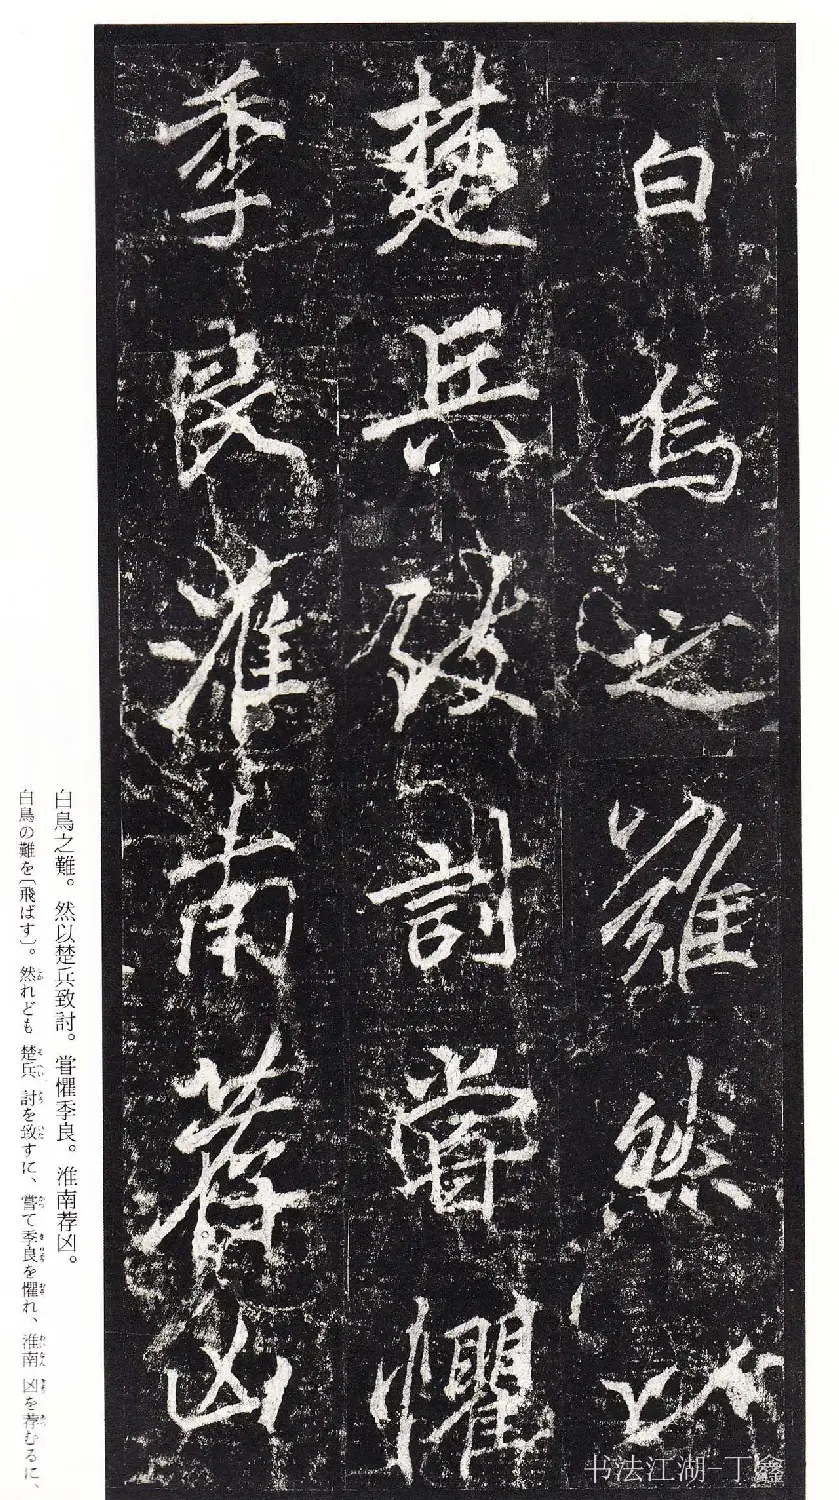 白鳥之難然以
楚兵致討甞懼
季良淮南荐凶
白鳥之難。然以楚兵致討。甞懼季良。淮南荐凶。
白鳥の難を〔飛ばす〕。然れども 楚兵 討を致すに、甞て季良を懼れ、淮南 凶を荐むるに、
书法江湖-丁鑫